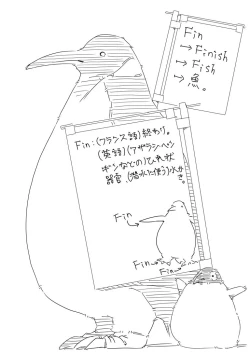 Fin
→ Finish
→ Fish
→ 魚。
Fin:(フランス語)終わり。
(英語)(アザラシ・ペン
ギンなどの)ひれ状
器官、(潜水に使う)水か
き。
Fin
Fin
Fin